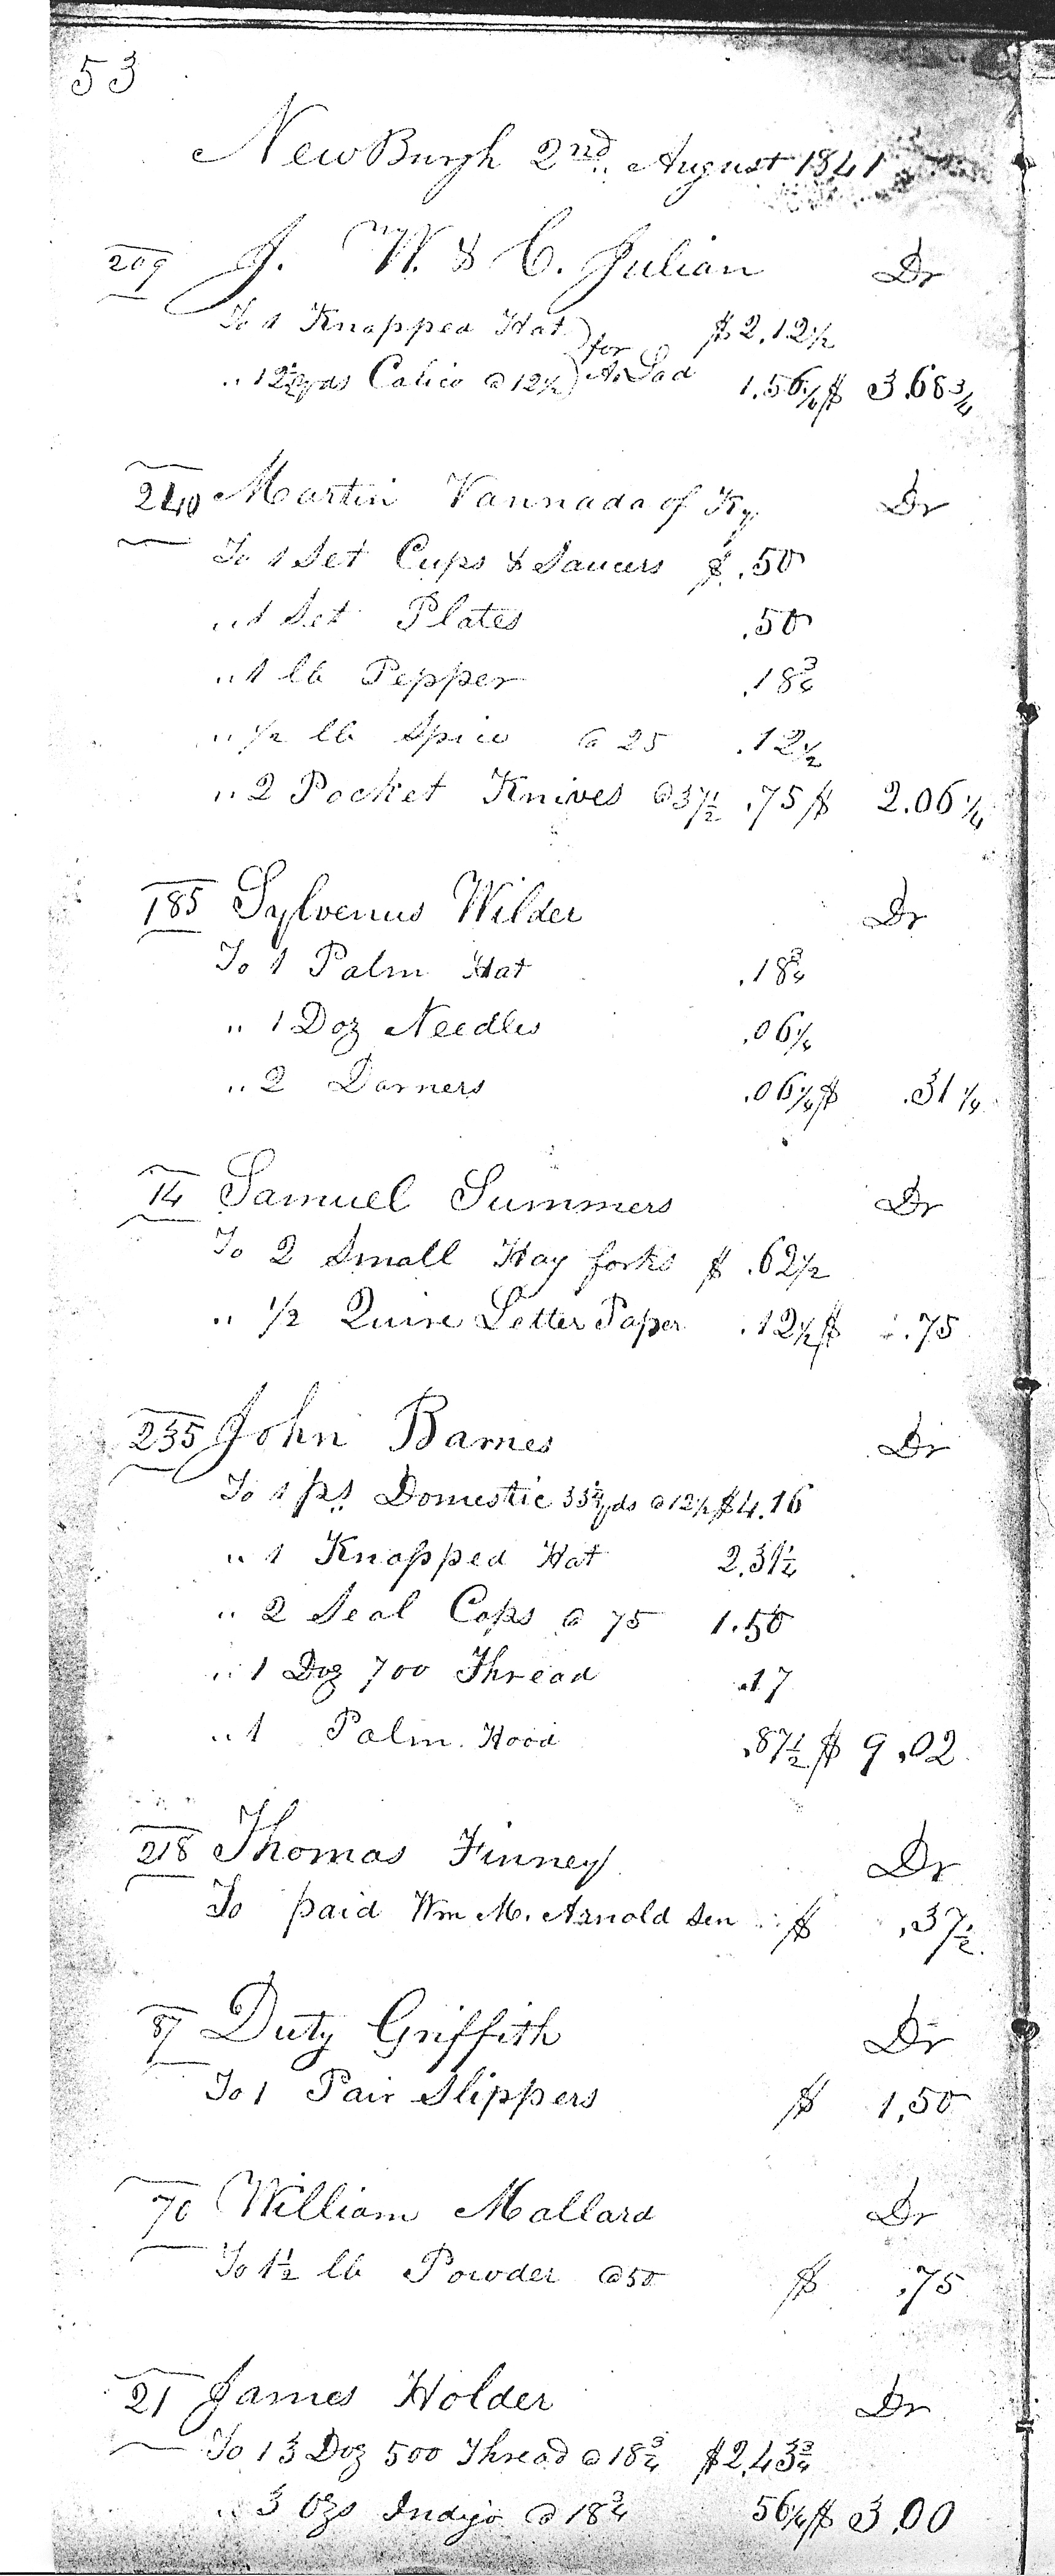 53
NewBurgh 2nd August 1841
209 J. W. & C. Julian Dr
To 1 Knapped Hat ) for $2.12½
" 12½ yds Calico @ 12½ ) A. Lad 1.56¼ $ 3.68¾
240 Martin Vannada of Ky Dr
To 1 Set Cups & Saucers $ .50
" 1 Set Plates .50
" 1 lb Pepper .18¾
" ½ lb Spice @ 25 .12½
" 2 Pocket Knives @ 37½ .75 $ 2.06¼
185 Sylvenus Wilder Dr
To 1 Palm Hat .18¾
" 1 Doz Needles .06¼
" 2 Darners .06¼ $ .31¼
14 Samuel Summers Dr
To 2 Small Hay forks $ .62½
" ½ Quire Letter Paper .12½ $ .75
235 John Barnes Dr
To 1 ps. Domestic 33¼ yds @ 12½ $4.16
" 1 Knapped Hat 2.31½
" 2 Seal Caps @ 75 1.50
" 1 Doz 700 Thread .17
" 1 Palm Hood .87½ $ 9.02
218 Thomas Finney Dr
To paid Wm M. Arnold Sen $ .37½
87 Duty Griffith Dr
To 1 Pair Slippers $ 1.50
70 William Mallard Dr
To 1½ lb Powder @ 50 $ .75
21 James Holder Dr
To 13 Doz 500 Thread @ 18¾ $2.43¾
" 3 Ozs Indigo @ 18¾ 56¼ $ 3.00